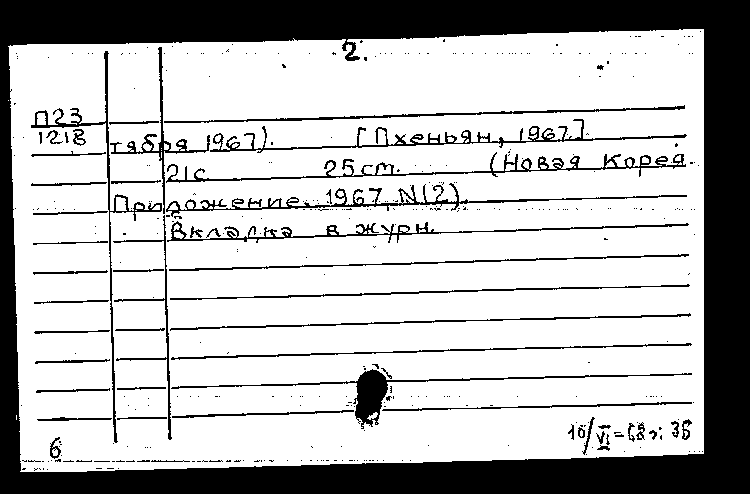 2.
П23
1218
тября 1967).    [Пхеньян, 1967].
21с    25ст.    (Новая Корея.
Приложение. 1967, N(2).
Вкладка в журн.
6
10/VI-